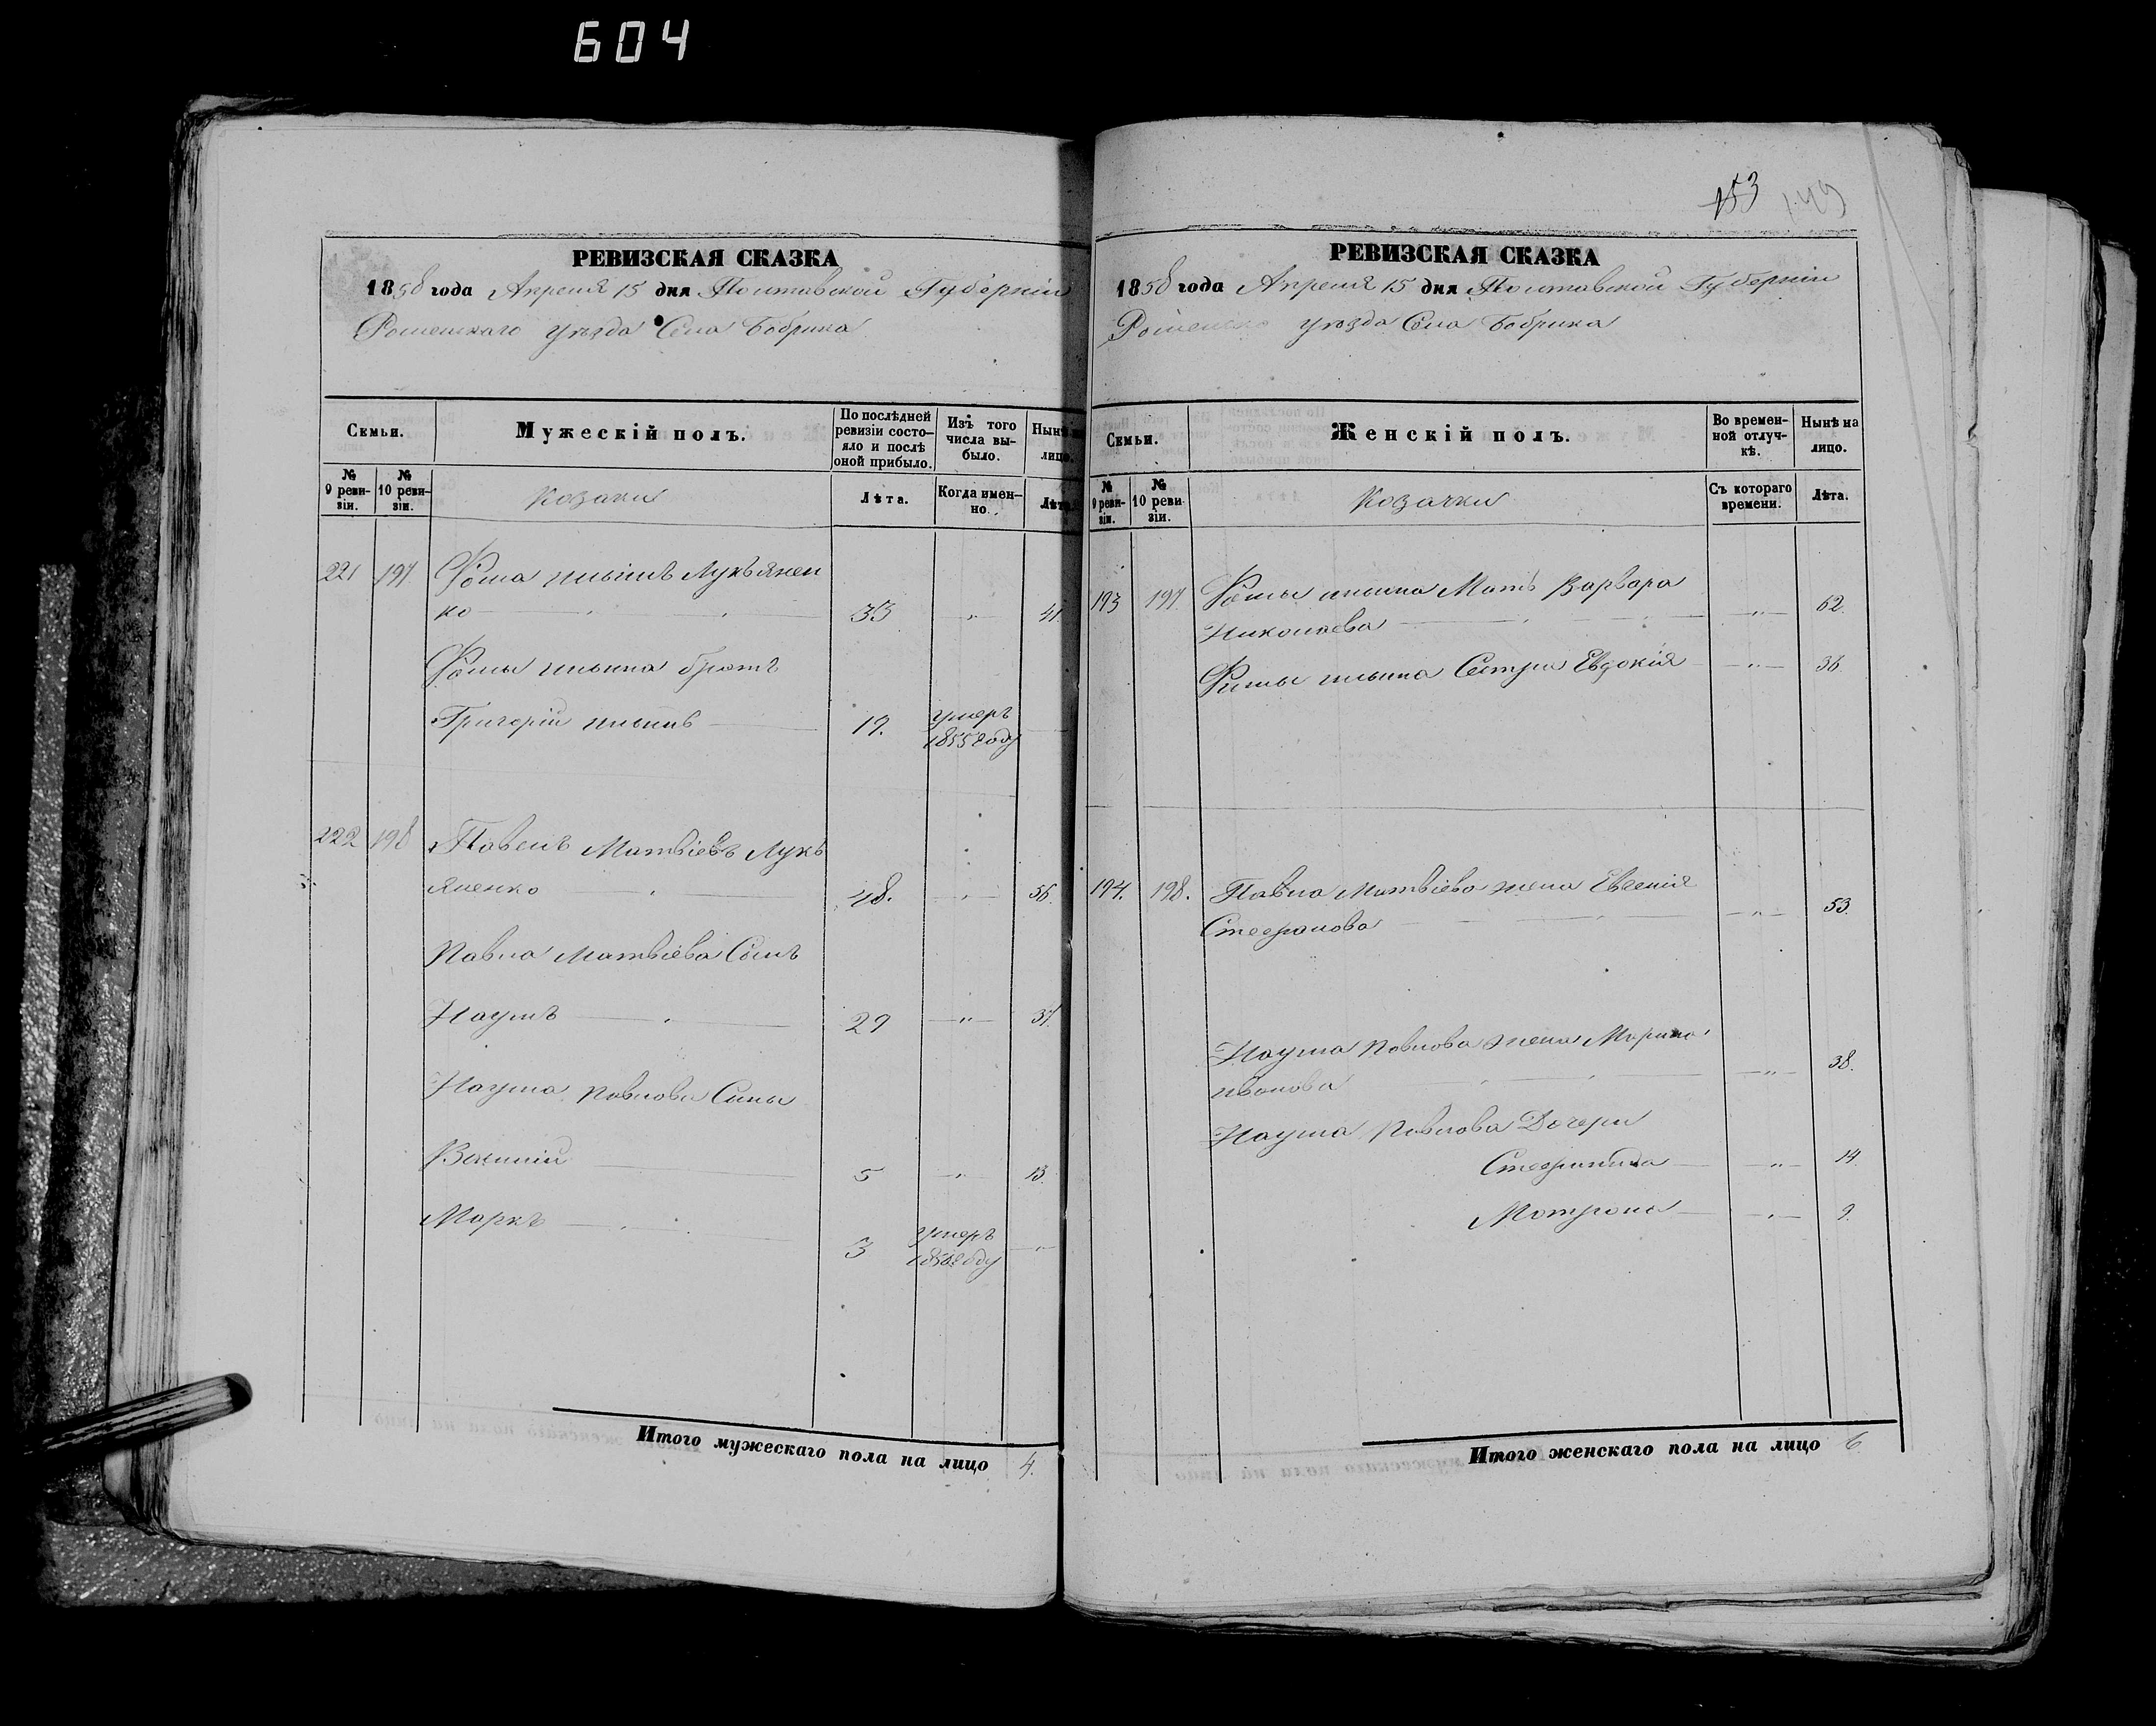 604
РЕВИЗСКАЯ СКАЗКА
1858 года Апреля 15 дня Полтавской Губерніи
Роменскаго уѣзда Села Бобрика
Семьи.
Мужескій полъ.
По послѣдней ревизіи состояло и послѣ оной прибыло.
Изъ того числа выбыло.
Нынѣ лицо.
№ 9 ревизіи.
№ 10 ревизіи.
Козаки
Лѣта.
Когда именно.
Лѣта
221 197 Фома Ильинъ Лукъянен
ко 33 " 41.
Фомы Ильина братъ
Григорій Ильинъ 19. умеръ
1855 году
222 198 Павелъ Матвіевъ Лукъ
яненко 48. " 56.
Павла Матвіева Сынъ
Наумъ 29 " 37.
Наума Павлова Сыны
5 " 13.
Маркъ 3 умеръ
году "
Итого мужескаго пола на лицо 4.
153 149
РЕВИЗСКАЯ СКАЗКА
1858 года Апреля 15 дня Полтавской Губерніи
уѣзда Села Бобрика
Семьи.
Женскій полъ.
Во временной отлучкѣ.
Нынѣ на лицо.
№ 9 ревизіи.
№ 10 ревизіи.
Козачки
Съ котораго времени.
Лѣта.
193 197. Фомы Ильина Мать Варвара
Николаева " 62.
Фомы Ильина Сестра Евдокія " 36.
194. 198. Павла Матвіева жена Евгенія
Стефанова " 53.
Наума Павлова жена Марина
Иванова " 38.
Наума Павлова Дочери
Стефанида " 14.
Мотрона " 9.
Итого женскаго пола на лицо 6